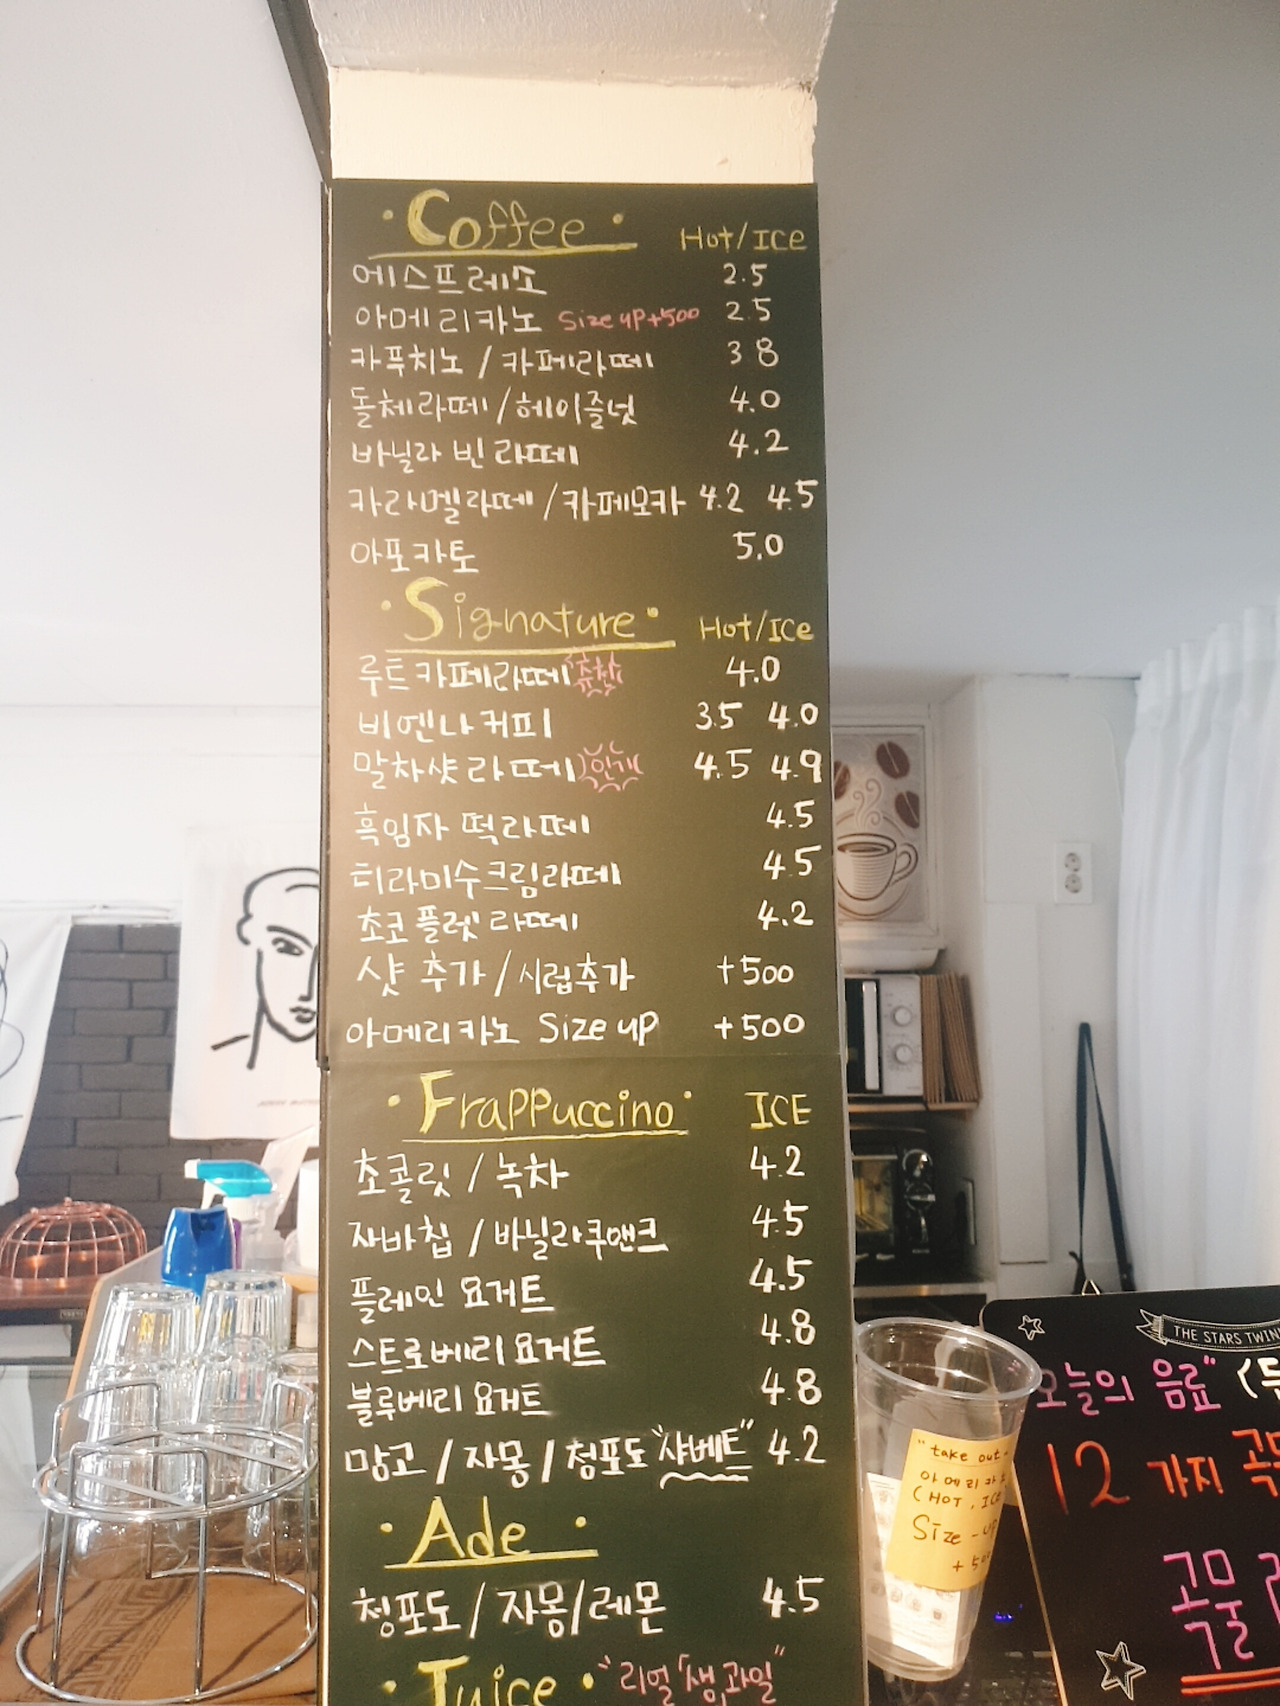 · Coffee · Hot/ICe
에스프레소 2.5
아메리카노 Size up+500 2.5
카푸치노 / 카페라떼 3 8
돌체라떼 / 헤이즐넛 4.0
바닐라 빈 라떼 4.2
카라멜라떼 / 카페모카 4.2 4.5
아포카토 5.0
· Signature · Hot/ICe
루트카페라떼 추천 4.0
비엔나커피 3.5 4.0
말차샷라떼 인기 4.5 4.9
흑임자 떡라떼 4.5
티라미수크림라떼 4.5
초코플렛라떼 4.2
샷 추가 / 시럽추가 +500
아메리카노 Size up +500
· Frappuccino · ICE
초콜릿 / 녹차 4.2
자바칩 / 바닐라쿠앤크 4.5
플레인 요거트 4.5
스트로베리요거트 4.8
블루베리 요거트 4.8
망고 / 자몽 / 청포도 "샤베트" 4.2
· Ade ·
청포도 / 자몽 / 레몬 4.5
· Juice · "리얼 생과일"
"take out"
(HOT, ICE
Size-up
THE STARS TWIN
오늘의 음료"
12 가지
곡물